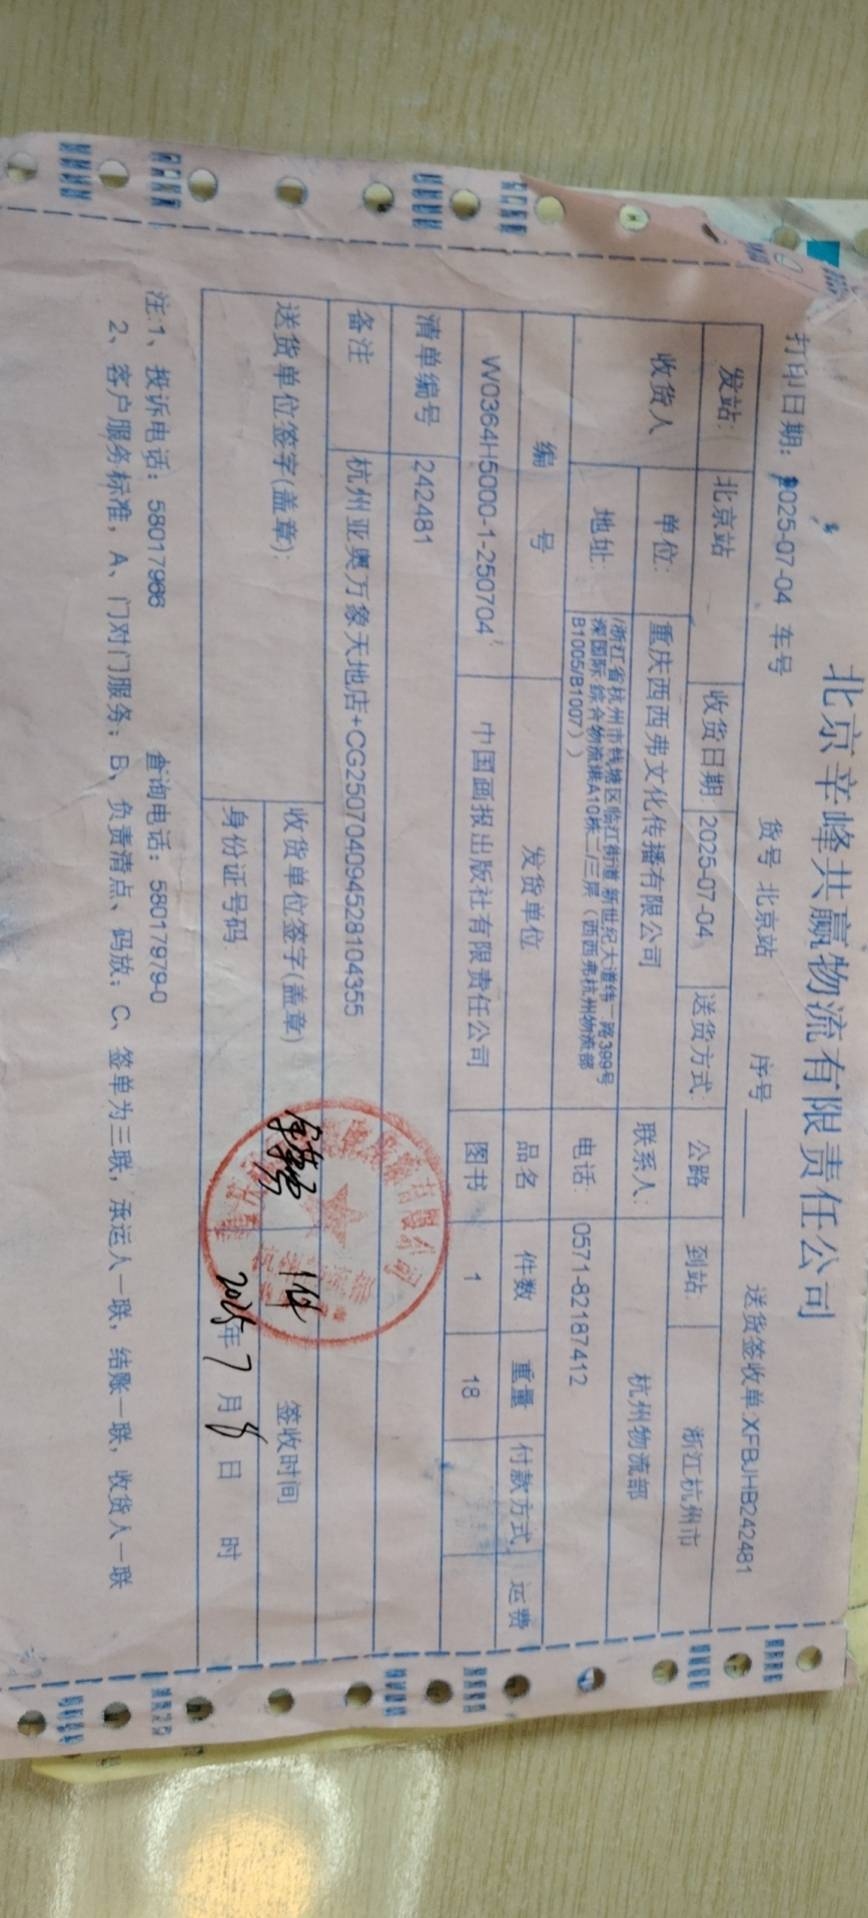 北京辛峰共赢物流有限责任公司
打印日期：2025-07-04 车号 货号 北京站 序号 送货签收单:XFBJHB242481
发站: 北京站 收货日期: 2025-07-04 送货方式: 公路 到站: 浙江杭州市
收货人 单位: 重庆西西弗文化传播有限公司 联系人: 杭州物流部
地址: 浙江省杭州市钱塘区临江街道 新世纪大道纬二路399号
深国际 综合物流港A10栋二/三层（西西弗杭州物流部
B1005/B1007）) 电话: 0571-82187412
编 号 发货单位 品名 件数 重量 付款方式 运费
W0364H5000-1-250704 中国画报出版社有限责任公司 图书 1 18
清单编号 242481
备注 杭州亚奥万象天地店+CG25070409452810​4355
送货单位签字(盖章): 收货单位签字(盖章) 1件 签收时间
身份证号码: 2025年7月8日 时
注:1、投诉电话：58017988 查询电话：58017979-0
2、客户服务标准，A、门对门服务；B、负责清点、码放；C、签单为三联，承运人一联，结账一联，收货人一联